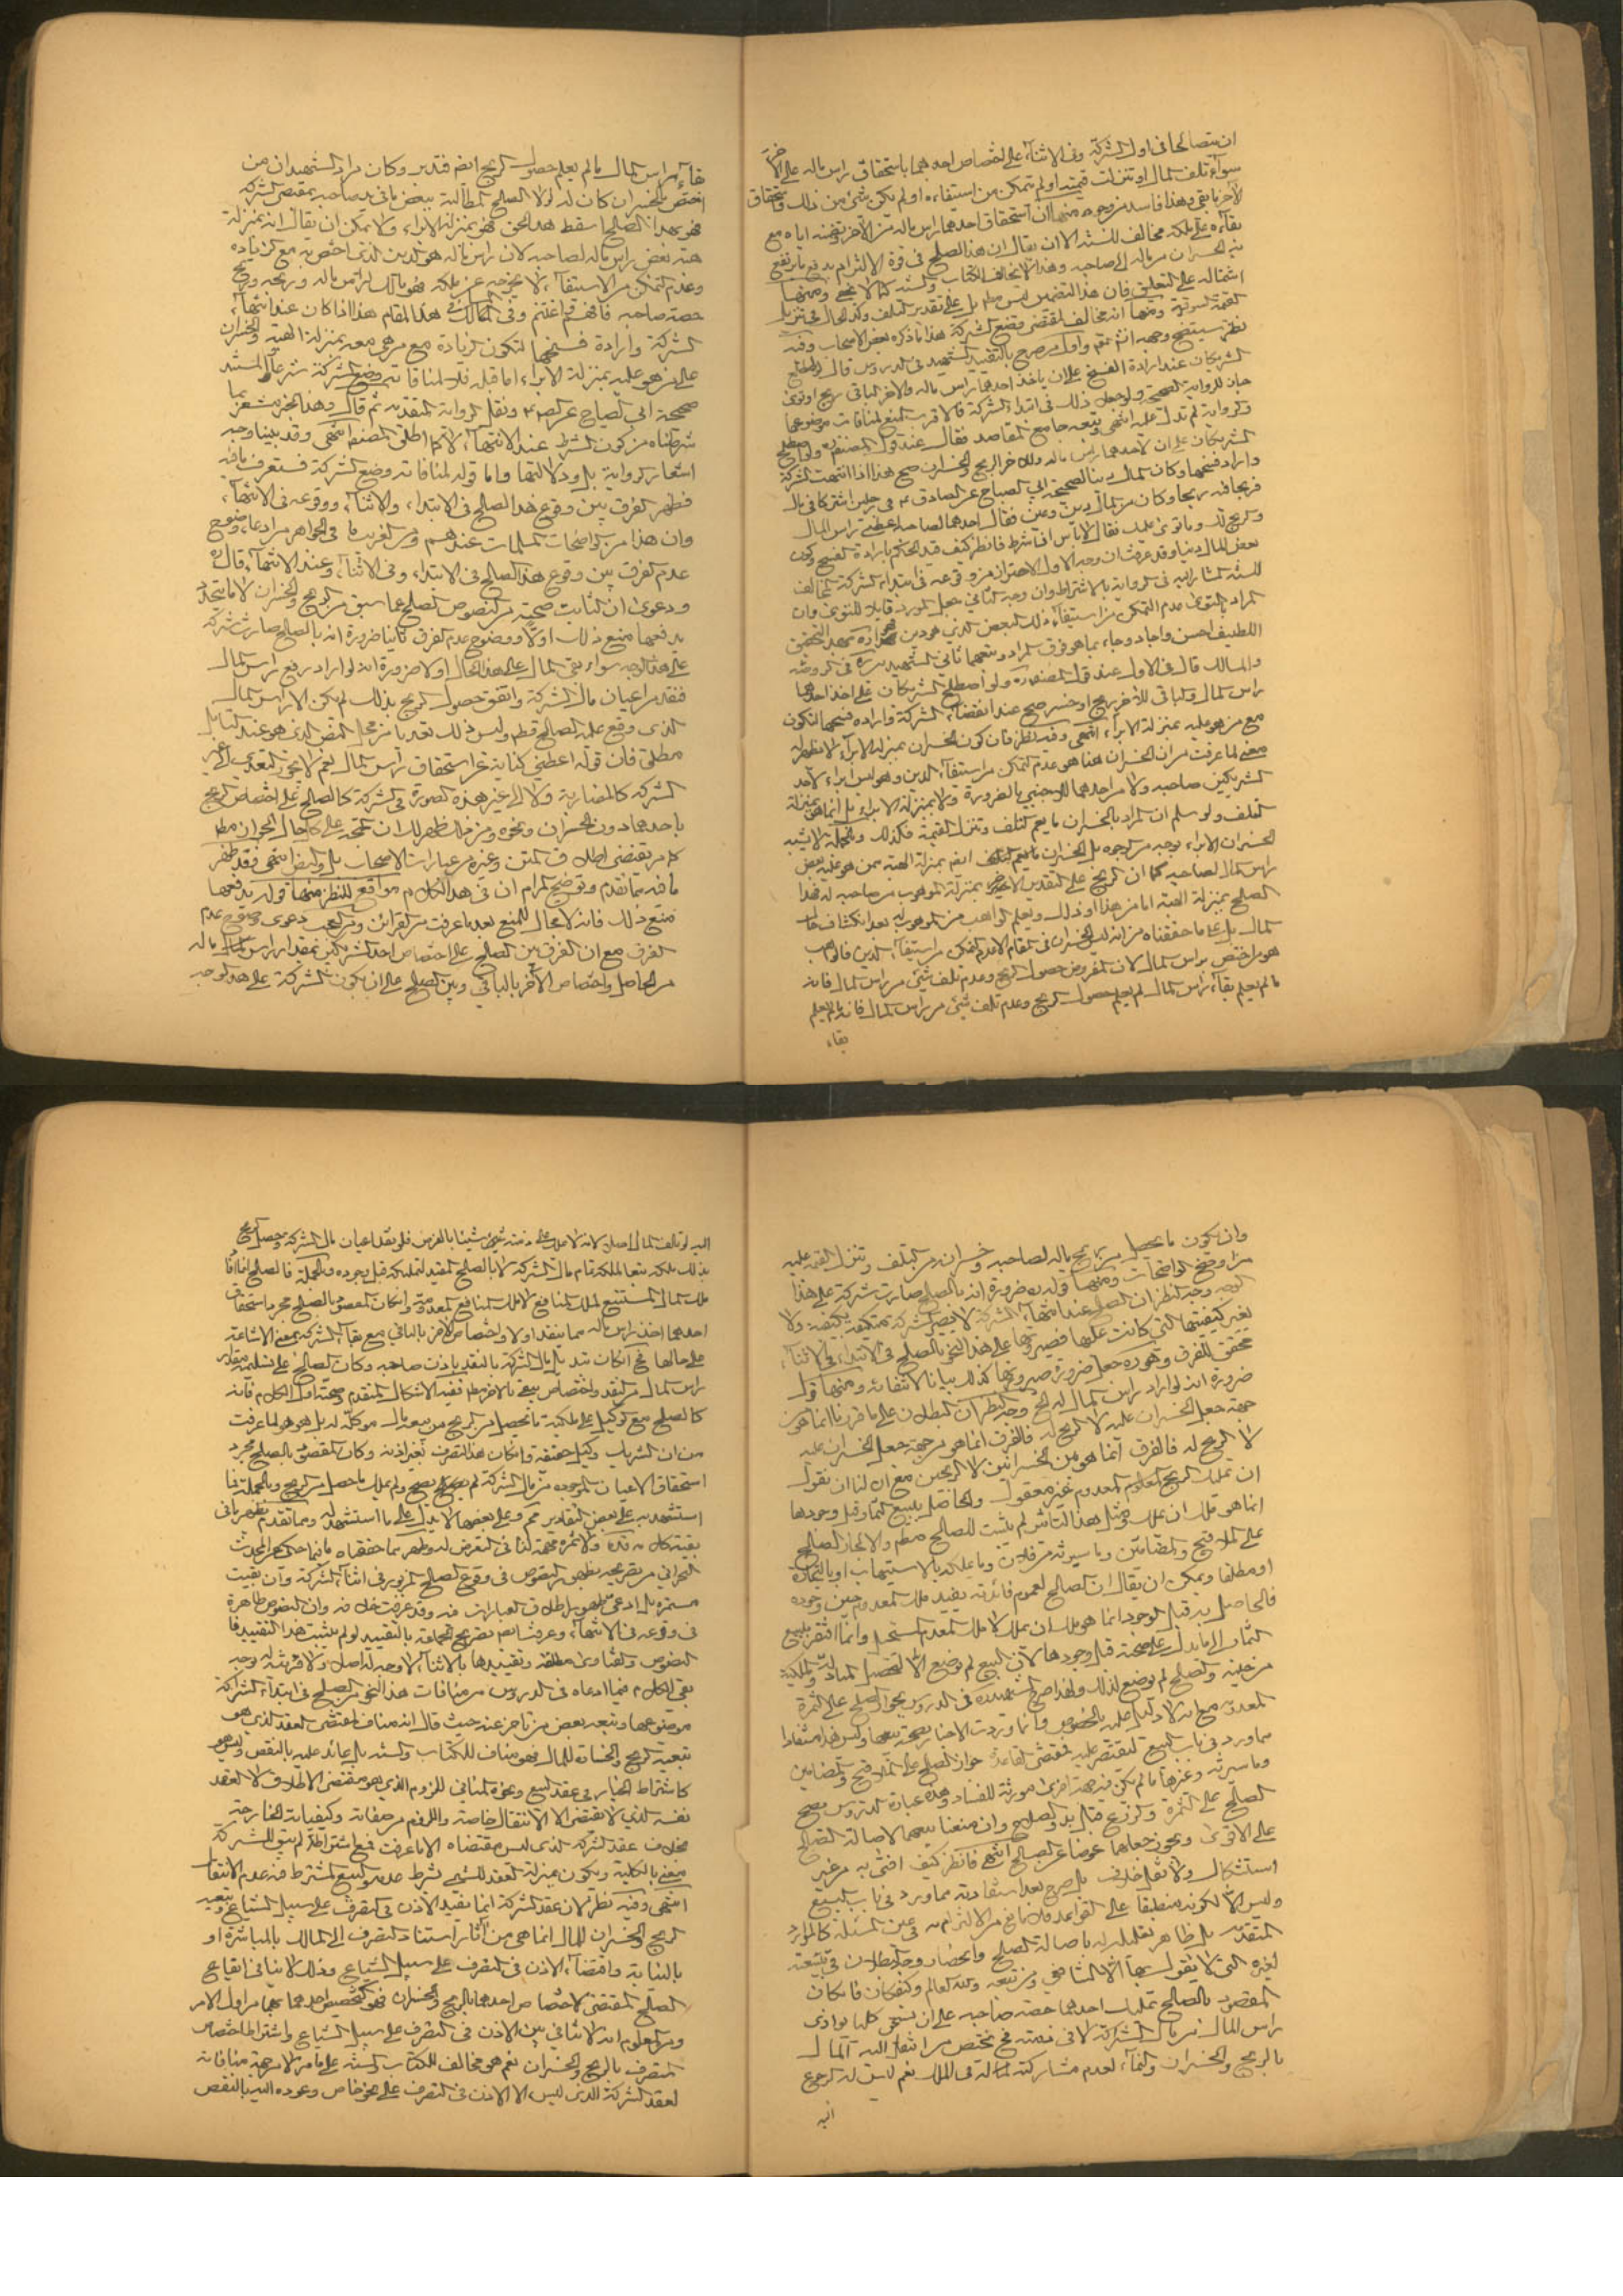 ان يتصالحا في اول الشركة وفي الاثناء على اختصاص احدهما باستحقاق راس ماله على الاخر
سواء تلف المال او تنزلت قيمته او لم يتمكن من استيفاءه او لم يكن شئ من ذلك واستحقاق
الاخر ما بقي وهذا فاسد من وجوه منها ان استحقاق احدهما راس ماله من الاخر وتضمنه اياه مع
بقاءه على ملكه مخالف للسنة الا ان يقال ان هذا الصلح في قوة الالتزام بدفع ما يرتفع
به الخسران من ماله الى صاحبه وهذا لا يخالف الكتاب والسنة كما لا يخفى ومنها
اشتماله على التعليق فان هذا التضمين ليس مطلقا بل على تقدير التلف وكذا الحال في تنزل
القيمة السوقية ومنها انه مخالف لمقتضى وضع الشركة هذا ما ذكره بعض الاصحاب وفيه
نظر سيتضح وجهه انش تعالى واول من صرح بالتقييد الشهيد في الدروس قال ولو اصطلح
الشريكان عند ارادة الفسخ على ان ياخذ احدهما راس ماله والاخر الباقي ربح او توى
جاز للرواية الصحيحة ولو جعل ذلك في ابتداء الشركة فالاقرب المنع لمنافاته موضوعها
والرواية لم تدل عليه انتهى وتبعه جامع المقاصد فقال عند قول المصنف ره ولو اصطلح
الشريكان على ان لاحدهما راس ماله وللاخر الربح والخسران صح هذا اذا انتهت الشركة
واريد فسخها وكان المال
فربحا فيه ربحا وكان من المال دين وعين فقال احدهما لصاحبه اعطني راس المال
والربح لك وما توى عليك فقال لا باس اذا شرط فانظر كيف قيد الحكم بارادة الفسخ وكون
بعض المال دينا وقد عرفت ان وجه الاول الاحتراز من وقوعه في ابتداء الشركة مخالف
للسنة المشار اليه في الرواية بالاشتراط وان وجه الثاني جعل المورد قابلا للتوى وان
المراد بالتوى عدم التمكن من استيفاء ذلك البعض الذي هو دين
اللطيف احسن واجاد وجاء بما هو فوق المراد وتبعهما ثاني الشهيدين ره في الروضة
والمسالك قال في الاول عند قول المصنف ره ولو اصطلح الشريكان على اخذ احدهما
راس المال والباقي للاخر ربح او خسر صح عند انقضاء الشركة وارادة فسخها لتكون
مع من هو عليه بمنزلة الابراء انتهى وفيه نظر فان كون الخسران بمنزلة الابراء لا يظهر له
معنى لما عرفت من ان الخسران هنا هو عدم التمكن من استيفاء الدين وهو ليس ابراء لاحد
الشريكين صاحبه ولا من احدهما للاجنبي بالضرورة ولا بمنزلة الابراء بل انما هو بمنزلة
التلف ولو سلم ان المراد بالخسران ما يعم التلف وتنزل القيمة فكذلك وبالجملة لا يشبه
الخسران الابراء بوجه من الوجوه بل الخسران
راس المال لصاحبه كما ان الربح على التقدير الاخر بمنزلة الموهوب من صاحبه له فهذا
الصلح بمنزلة الهبة
المال بل على ما حققناه من انه ليس الخسران في المقام الا عدم التمكن من استيفاء الدين فالواهب
هو من اختص براس المال لان المفروض حصول الربح وعدم تلف شئ من راس المال فانه
ما لم يعلم بقاء راس المال لم يعلم حصول الربح وعدم تلف شئ من راس المال فانه ما لم يعلم
بقاء
بقاء راس المال ما لم يعلم حصول الربح ايضا فتدبر وكان مراد الشهيد ان من
اختص بالخسران كان له لولا الصلح المطالبة ببعض ما في يد صاحبه بمقتضى الشركة
فهو بهذا الصلح اسقط هذا الحق فهو بمنزلة الابراء ولا يمكن ان يقال انه بمنزلة
هبة بعض راس ماله لصاحبه لان راس ماله هو الدين الذي اختص به مع الزيادة
وعدم التمكن من الاستيفاء لا يخرجه عن ملكه فهو مالك لراس ماله وربحه وربح
حصة صاحبه فافهم واغتنم وفي المسالك في هذا المقام هذا اذا كان عند انتهاء
الشركة وارادة فسخها لتكون الزيادة مع من هي معه بمنزلة الهبة والخسران
على من هو عليه بمنزلة الابراء اما قبله فلا لمنافاته وضع الشركة شرعا والمستند
صحيحة ابي الصباح عن الص ع ونقل الرواية المتقدمة ثم قال وهذا الخبر مشعر بما
شرطناه من كون الشرط عند الانتهاء لا كما اطلق المصنف انتهى وقد بينا وجه
اشعار الرواية بل ودلالتها واما قوله لمنافاته وضع الشركة فستعرف ما فيه
فظهر الفرق بين وقوع هذا الصلح في الابتداء والاثناء ووقوعه في الانتهاء
وان هذا من الواضحات المسلمات عندهم ومن الغريب ما في الجواهر من ادعاء وضوح
عدم الفرق بين وقوع هذا الصلح في الابتداء وفي الاثناء وعند الانتهاء قال ره
ودعوى ان الثابت صحته من النصوص الصلح عما سبق من الربح والخسران لا ما يتجدد
يدفعها منع ذلك اولا ووضوح عدم الفرق ثانيا ضرورة انه بالصلح صارت شركة
على هذا الوجه سواء بقي المال على هذا الحال او لا ضرورة انه لو اراد ربع راس المال
فنقد من اعيان مال الشركة واتفق حصول الربح بذلك لم يكن الا راس المال
الذي وقع عليه الصلح قطعا وليس ذلك تعديا من محل النص الذي هو عند التامل
مطلق فان قوله اعطني كناية عن استحقاق راس المال نعم لا يجوز التعدي الى غير
الشركة كالمضاربة ولا الى غير هذه الصورة في الشركة كالصلح على اختصاص الربح
باحدهما دون الخسران ونحوه ومن ذلك ظهر لك ان المتجه على كل حال الجواز مطلقا
كما هو مقتضى اطلاق المتن وغيره من عبارات الاصحاب بل والنص انتهى فقد ظهر
ما فيه مما تقدم وتوضيح المرام ان في هذا الكلام مواقع للنظر منها قوله يدفعها
منع ذلك فانه لا مجال للمنع بعد ما عرفت من القرائن ومن العجب دعوى وضوح عدم
الفرق مع ان الفرق بين الصلح على اختصاص احد الشريكين بمقدار راس ماله
من الحاصل واختصاص الاخر بالباقي وبين الصلح على ان يكون الشركة على هذا الوجه
وان يكون ما يحصل من ربح ماله لصاحبه وخسران من التلف وتنزل القيمة عليه
من اوضح الواضحات ومنها قوله ره ضرورة انه بالصلح صارت شركة على هذا
الوجه وجه النظر ان الصلح عند انتهاء الشركة لا يصير الشركة متكيفة بكيفية ولا
يغير كيفيتها التي كانت عليها فصيرورتها على هذا النحو بالصلح في الابتداء وفي الاثناء
محقق للفرق وهو ره جعل ضرورة صيرورتها كذلك بيانا لانتفاءه ومنها قوله
ضرورة انه لو اراد راس المال الخ وجه النظر ان البطلان على ما قررنا انما هو من
جهة جعل الخسران عليه لا الربح له فالفرق انما هو من جهة جعل الخسران عليه
لا الربح له فالفرق انما هو بين الخسرانين لا الربحين مع ان لنا ان نقول
ان تمليك الربح المعدوم غير معقول والحاصل ببيع الثمار قبل وجودها
انما هو تملك ان يملك ومثل هذا التاثير لم يثبت للصلح مطلقا والا لجاز الصلح
على الملاقيح والمضامين وما سيرثه من فلان وما يملكه بالاستيهاب او بالتجارة
او مطلقا ويمكن ان يقال ان الصلح لعموم فائدته يفيد ملك المعدوم حين وجوده
فالحاصل به قبل الوجود انما هو ملك ان يملك لا ملك المعدوم المستحيل وانما افتقر بيع
الثمار الى ما يدل على صحته قبل وجودها لان البيع لم يوضع الا لتحصيل المبادلة والملكية
من حينه والصلح لم يوضع لذلك ولهذا صرح الشهيد ره في الدروس بجواز الصلح على الثمرة
المعدومة مع انه لا دليل عليه بالخصوص وانما وردت الاخبار بصحة بيعها وليس هذا مستفادا
مما ورد في باب البيع ليقتصر عليه فمقتضى القاعدة جواز الصلح على الملاقيح والمضامين
وما سيرثه وغيرها ما لم يكن فيه جهة اخرى مورثة للفساد وهذه عبارة الدروس يصح
الصلح على الثمرة والزرع قبل بدو الصلاح وان منعنا بيعهما لاصالة الصلح
على الاقوى ويجوز جعلها عوضا عن الصلح انتهى فانظر كيف افتى به من غير
استشكال ولا نقل خلاف بل صرح بعدم استفادته مما ورد في باب البيع
وليس الا لكونه منطبقا على القواعد فلا مانع من الالتزام به في عين المسئلة كالموارد
المتقدمة بل ظاهر تعليله له باصالة الصلح وانحصار وجه البطلان في تبعيته
لغيره التي لا يقول بها الا الشافعي ومن تبعه والله العالم وكيف كان فان كان
المقصود بالصلح تمليك احدهما حصته صاحبه على ان يستحق كليا يوازي
راس المال من مال الشركة لا في ذمته فح يختص من انتقل اليه المال
بالربح والخسران والنماء لعدم مشاركة المالك في الملك نعم ليس له الرجوع
اليه
اليه لو تلف المال
بذلك ملكه تبعا لملكه تمام مال الشركة لا بالصلح المفيد لتمليكه قبل وجوده وبالجملة فالصلح افاد
ملك المال المستتبع لملك المنافع لا ملك المنافع المعدومة وان كان المقصود بالصلح مجرد استحقاق
احدهما اخذ راس ماله مما ينقد اولا واختصاص الاخر بالباقي مع بقاء الشركة بمعنى الاشاعة
على حالها فح ان كان تبديل مال الشركة بالنقد باذن صاحبه وكان الصلح على تسليمه مقدار
راس المال من النقد واختصاص
كالصلح مع الوكيل على ملكية ما يحصل من الربح من بيع مال موكله له بل هو هو لما عرفت
من ان الشريك وكيل حقيقة وان كان هذا التصرف بغير اذنه وكان المقصود بالصلح مجرد
استحقاق الاعيان الموجودة من مال الشركة لم يصح ولم يملك ما حصل من الربح وبالجملة فما
استشهد به على بعض التقادير محرم وعلى بعضها لا يدل على ما استشهد له ومما تقدم يظهر ما في
بقية كلامه قده ولا ثمرة مهمة لنا في التعرض له وظهر مما حققناه ما فيما حكى عن المحدث
البحراني من تصريحه بظهور النصوص في وقوع الصلح المزبور في اثناء الشركة وان بقيت
مستمرة بل ادعى ظهور اطلاق العبارات فيه وقد عرفت خلافه وان النصوص ظاهرة
في وقوعه في الانتهاء وعرفت ايضا تصريح الجماعة بالتقييد لو لم يثبت هذا التقييد فالنصوص
والفتاوى مطلقة وتقييدها بالاثناء لا وجه له اصلا ولا قرينة له بوجه
بقي الكلام فيما ادعاه في الدروس من منافات هذا النحو من الصلح في ابتداء الشركة
موضوعها وتبعه بعض من تاخر عنه حيث قال انه مناف لمقتضى العقد الذي هو
تبعية الربح والخسارة للمال فهو مناف للكتاب والسنة بل عائد عليه بالنقض وليس هو
كاشتراط الخيار في عقد البيع ونحوه المنافي للزوم الذي هو مقتضى الاطلاق لا العقد
نفسه الذي لا يقتضي الا الانتقال خاصة واللزوم من صفاته وكيفياته الخارجية
بخلاف عقد الشركة الذي ليس مقتضاه الا ما عرفت فمع اشتراطه لم يبق للشركة
معنى بالكلية ويكون بمنزلة العقد للشئ بشرط عدمه والبيع المشترط فيه عدم الانتقال
انتهى وفيه نظر لان عقد الشركة انما يفيد الاذن في التصرف على سبيل الشياع وتبعية
الربح والخسران للمال انما هي من اثار استناد التصرف الى المالك بالمباشرة او
بالنيابة واقتضاء الاذن في التصرف على سبيل الشياع وذلك لا ينافي ايقاع
الصلح المقتضي لاختصاص احدهما بالربح والخسران فهو كتخصيص احدهما بهما من اول الامر
ومن المعلوم انه لا تنافي بين الاذن في التصرف على سبيل الشياع واشتراط اختصاص
المتصرف بالربح والخسران نعم هو مخالف للكتاب والسنة على ما مر لا من جهة منافاته
لعقد الشركة الذي ليس الا الاذن في التصرف على نحو خاص وعوده اليه بالنقض